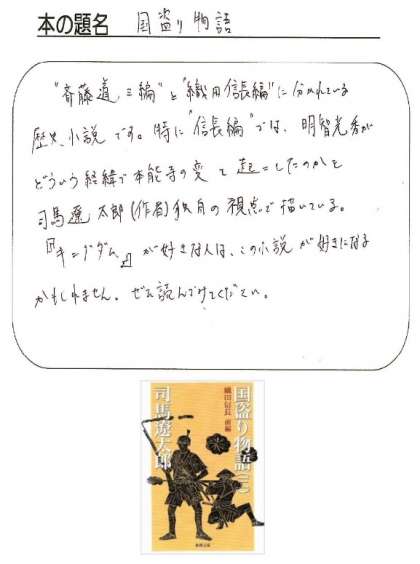 本の題名 国盗り物語
"斉藤道三編"と"織田信長編"に分かれている
歴史小説です。特に"信長編"では、明智光秀が
どういう経緯で本能寺の変を起こしたのかを
司馬遼太郎(作者)独自の視点で描いている。
『キングダム』が好きな人は、この小説が好きになる
かもしれません。ぜひ読んでみてください。
国盗り物語(三)
織田信長 前編
司馬遼太郎
新潮文庫